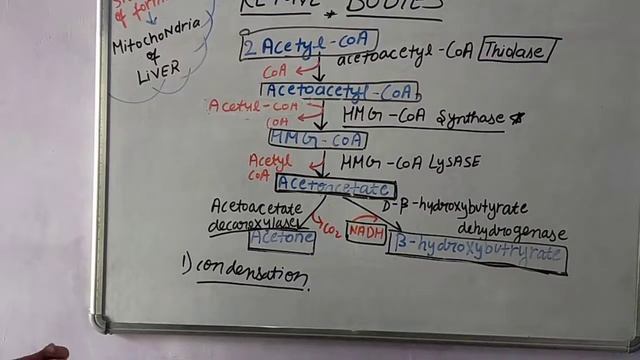 KETONE BODIES
of form
Mitochondria
of
LIVER
2 Acetyl-CoA
acetoacetyl-CoA Thiolase
CoA
Acetoacetyl-CoA
Acetyl-CoA
COA
HMG-CoA Synthase *
HMG-CoA
Acetyl
CoA
HMG-CoA LySASE
Acetoacetate
Acetoacetate
decaroxylase
CO2
NADH
D-β-hydroxybutyrate
dehydrogenase
Acetone
β-hydroxybutryrate
1) condensation.